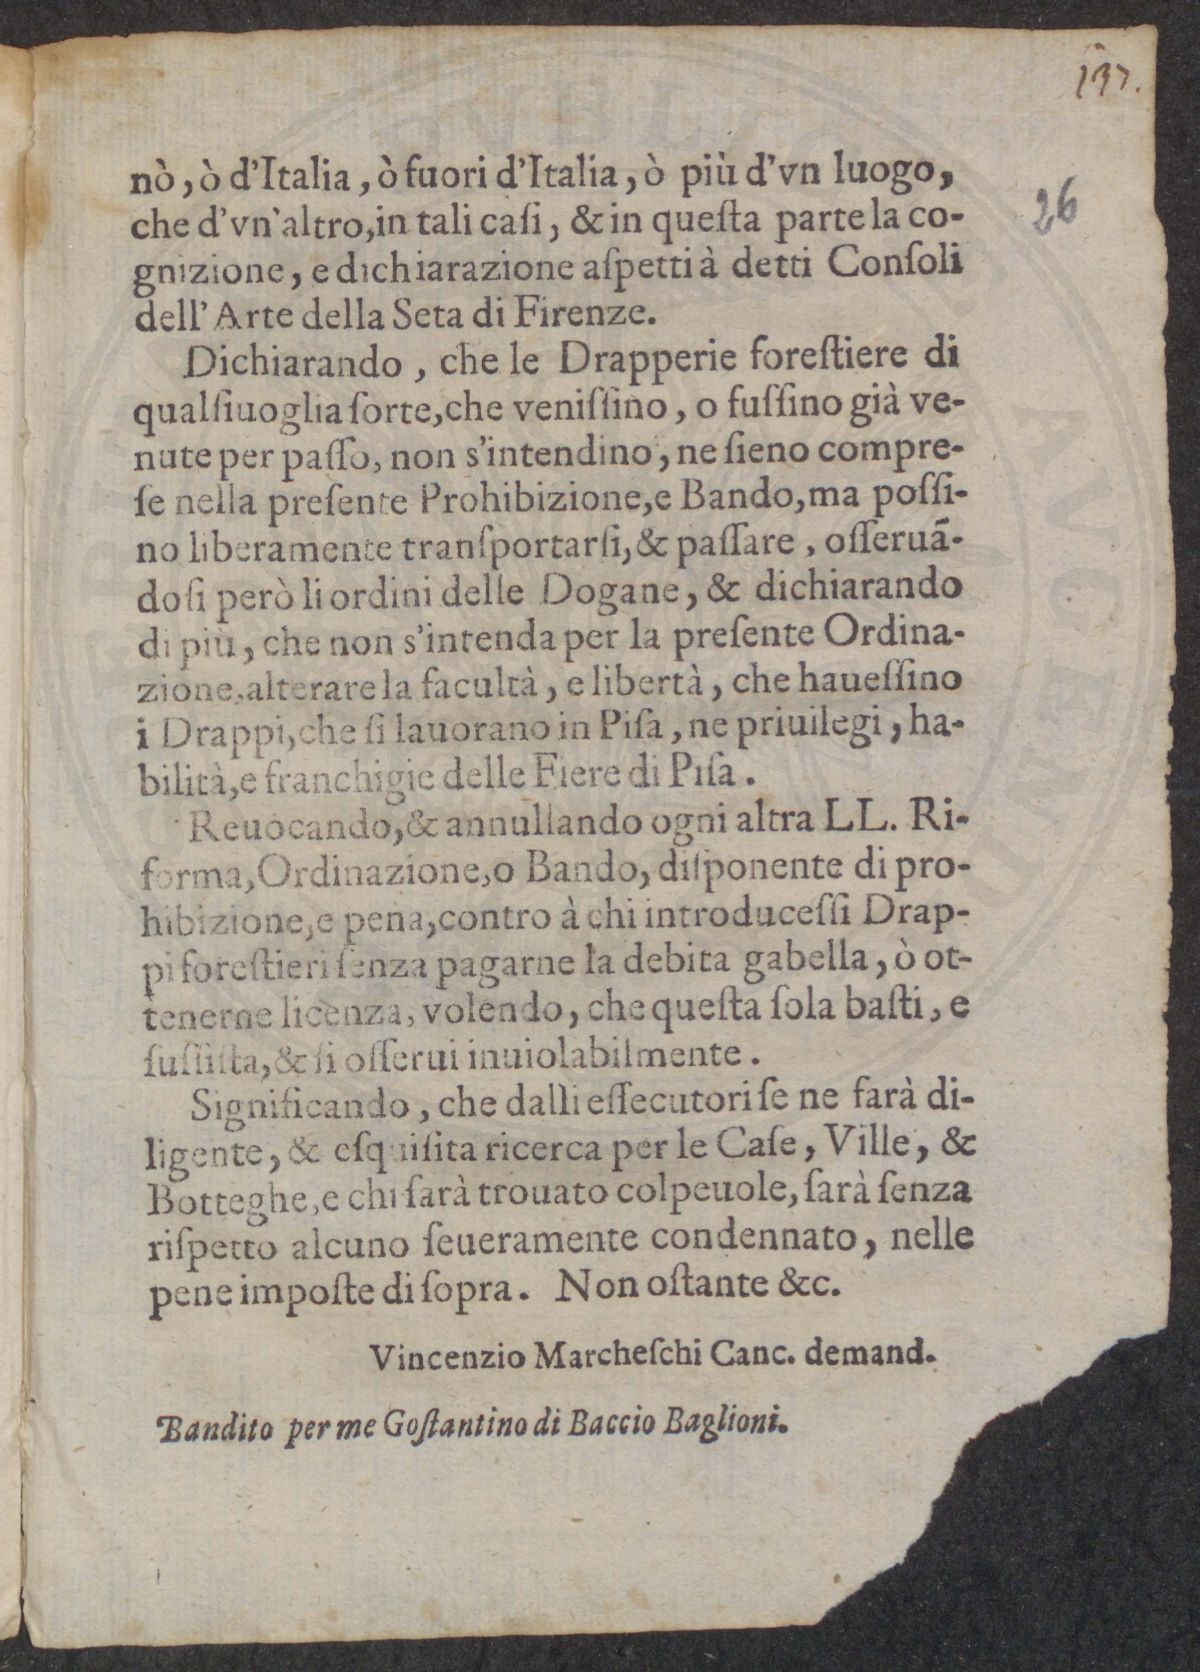 137.
26
nò, ò d'Italia, ò fuori d'Italia, ò più d'vn luogo,
che d'vn'altro, in tali caſi, & in queſta parte la co-
gnizione, e dichiarazione aſpetti à detti Conſoli
dell'Arte della Seta di Firenze.
Dichiarando, che le Drapperie foreſtiere di
qualſiuoglia ſorte, che veniſſino, o fuſſino già ve-
nute per paſſo, non s'intendino, ne ſieno compre-
ſe nella preſente Prohibizione, e Bando, ma poſſi-
no liberamente tranſportarſi, & paſſare, oſſeruã-
doſi però li ordini delle Dogane, & dichiarando
di più, che non s'intenda per la preſente Ordina-
zione, alterare la facultà, e libertà, che haueſſino
i Drappi, che ſi lauorano in Piſa, ne priuilegi, ha-
bilità, e franchigie delle Fiere di Piſa.
Reuocando, & annullando ogni altra LL. Ri-
forma, Ordinazione, o Bando, diſponente di pro-
hibizione, e pena, contro à chi introduceſſi Drap-
pi foreſtieri ſenza pagarne la debita gabella, ò ot-
tenerne licenza, volendo, che queſta ſola baſti, e
ſuſſiſta, & ſi oſſerui inuiolabilmente.
Significando, che dalli eſſecutori ſe ne farà di-
ligente, & eſquiſita ricerca per le Caſe, Ville, &
Botteghe, e chi ſarà trouato colpeuole, ſarà ſenza
riſpetto alcuno ſeueramente condennato, nelle
pene impoſte di ſopra. Non oſtante &c.
Vincenzio Marcheſchi Canc. demand.
Bandito per me Goſtantino di Baccio Baglioni.